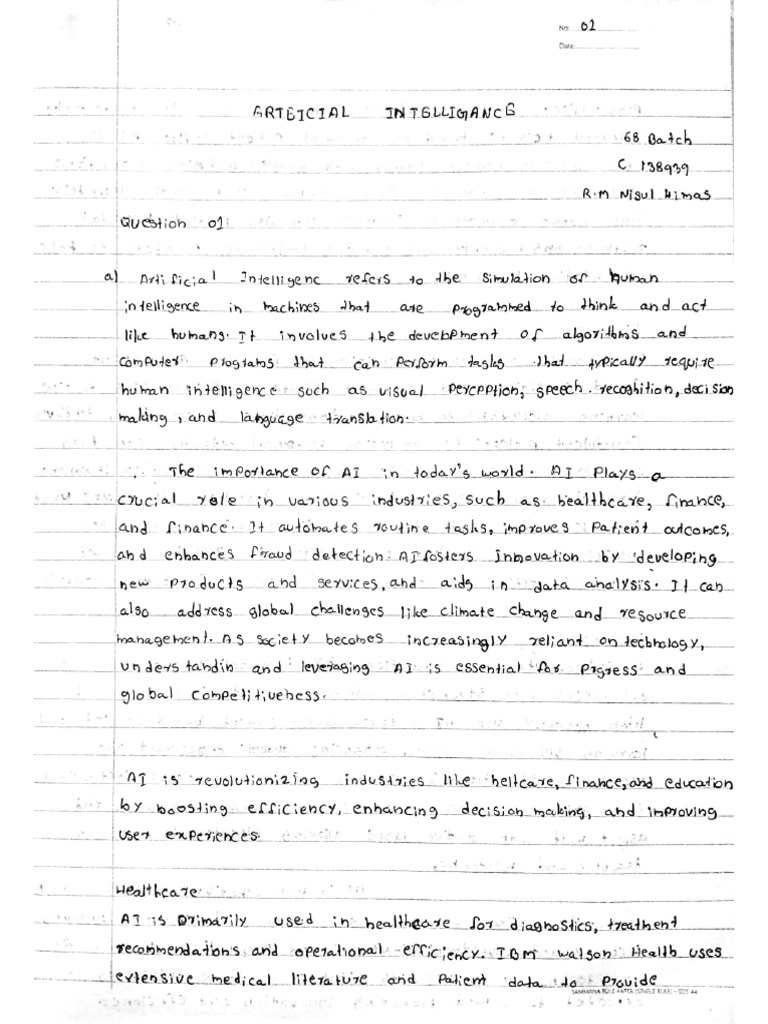 No: 01
Date:
ARTEICIAL INTELLIGANCE
68 Batch
C. 138939
R.M Nisul Himas
Question 01:
a) Artificial Intelligenc refers to the simulation of human
intelligence in machines that are programmed to think and act
like humans. It involves the development of algorithms and
computer programs that can perform tasks that typically require
human intelligence such as visual percpption, speech. recoghition, decision
making, and language translation.
The importance of AI in today's world. AI plays a
crucial role in various industries, such as healthcare, finance,
and finance. It automates routine tasks, improves patient outcomes,
and enhances fraud detection. AI fosters innovation by developing
new products and services, and aids in data analysis. It can
also address global challenges like climate change and resource
management. As society becomes increasingly reliant on technology,
understandin and leveraging AI is essential for prgress and
global competitiveness.
AI is revolutionizing industries like heltcare, finance, and education
by boosting efficiency, enhancing decision making, and improving
user experiences.
Healthcare
AI is primarily used in healthcare for diagnostics, treatment
recommendations and operational efficiency. IBM watson Health uses
extensive medical literature and patient data to provide